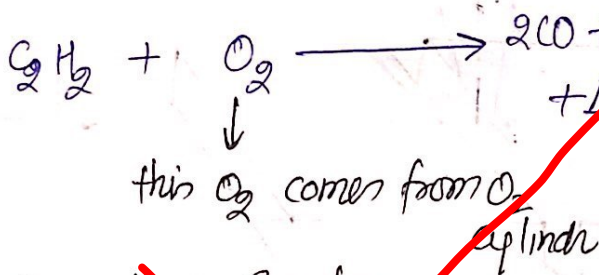 C2H2 + O2 ⟶ 2CO
+
↓
this O2 comes from O2
cylindr